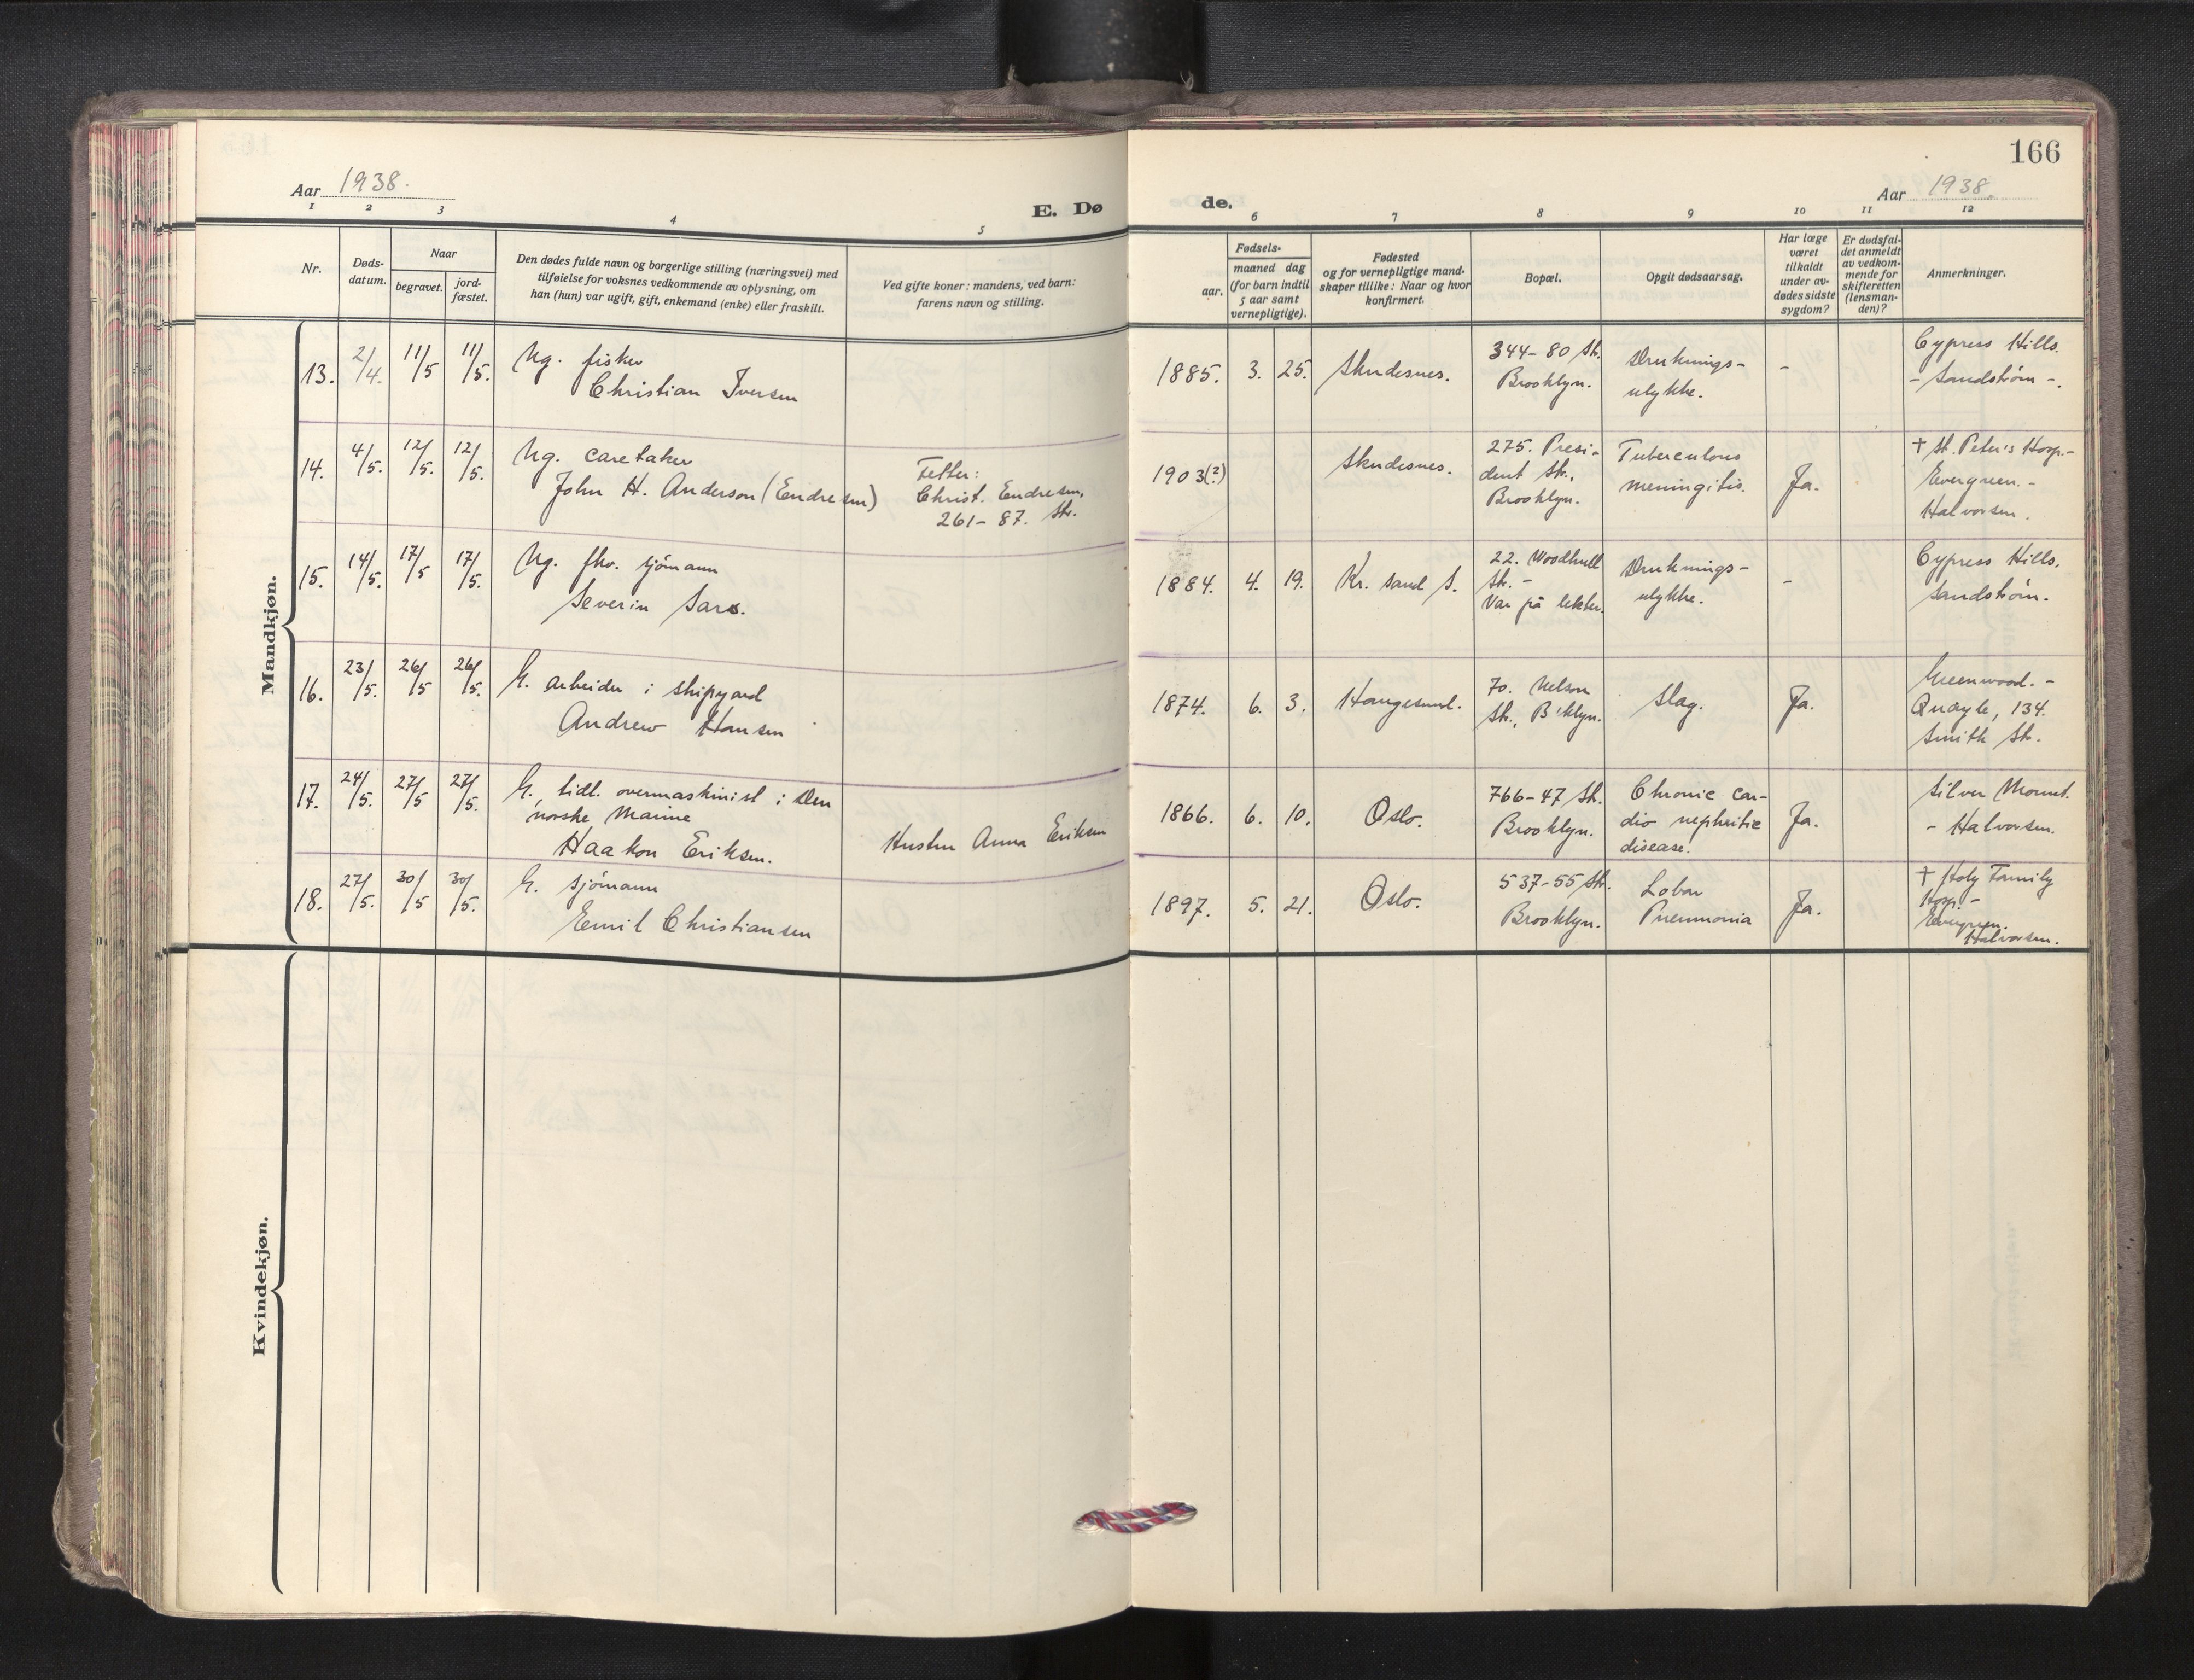 166
Aar 1938.
E. Dø
de.
Aar 1938.
1 2 3 4 5 6 7 8 9 10 11 12
Nr.
Døds-
datum.
Naar
begravet.
jord-
fæstet.
Den dødes fulde navn og borgerlige stilling (næringsvei) med
tilføielse for voksnes vedkommende av oplysning, om
han (hun) var ugift, gift, enkemand (enke) eller fraskilt.
Ved gifte koner: mandens, ved barn:
farens navn og stilling.
Fødsels-
aar.
maaned dag
(for barn indtil
5 aar samt
vernepligtige).
Fødested
og for vernepligtige mand-
skaper tillike: Naar og hvor
konfirmert.
Bopæl.
Opgit dødsaarsag.
Har læge
været
tilkaldt
under av-
dødes sidste
sygdom?
Er dødsfal-
det anmeldt
av vedkom-
mende for
skifteretten
(lensman-
den)?
Anmerkninger.
Mandkjøn.
13. 2/4. 11/5 11/5.
Ug. fisker
Christian Iversen
1885. 3. 25. Skudesnes.
344-80 Str.
Brooklyn.
Druknings-
ulykke.
-
Cypress Hills.
- Sandström -.
14. 4/5. 12/5. 12/5.
Ug. caretaker
John H. Anderson (Endresen)
Fetter:
Christ. Endresen,
261-87. Str.
1903(?) Skudesnes.
275. Presi-
dent Str.,
Brooklyn.
Tuberculous
meningitis.
Ja.
† St. Peter's Hosp.-
Evergreen. -
Halvorsen.
15. 14/5. 17/5 17/5.
Ug. fhv. sjömann
Severin Sars.
1884. 4. 19. Kr. sand S.
22. Woodhull
Str. -
Var på lekter.
Druknings-
ulykke.
-
Cypress Hills.
Sandström.
16. 23/5. 26/5 26/5.
G. arbeider i shipyard
Andrew Hansen
1874. 6. 3. Haugesund.
70. Nelson
Str., B'klyn.
Slag.
Ja.
Greenwood. -
Quayle, 134.
Smith Str.
17. 24/5. 27/5 27/5.
G., tidl. overmaskinist i Den
norske Marine
Haakon Eriksen.
Hustru Anna Eriksen
1866. 6. 10. Oslo.
766-47 Str.
Brooklyn.
Chronic car-
dio nephritic
disease.
Ja.
Silver Mount.
- Halvorsen.
18. 27/5. 30/5 30/5.
G. sjömann
Emil Christiansen
1897. 5. 21. Oslo.
537-55 Str.
Brooklyn.
Lobar
Pneumonia
Ja.
† Holy Family
Hosp. -
Evergreen.
Halvorsen.
Kvindekjøn.